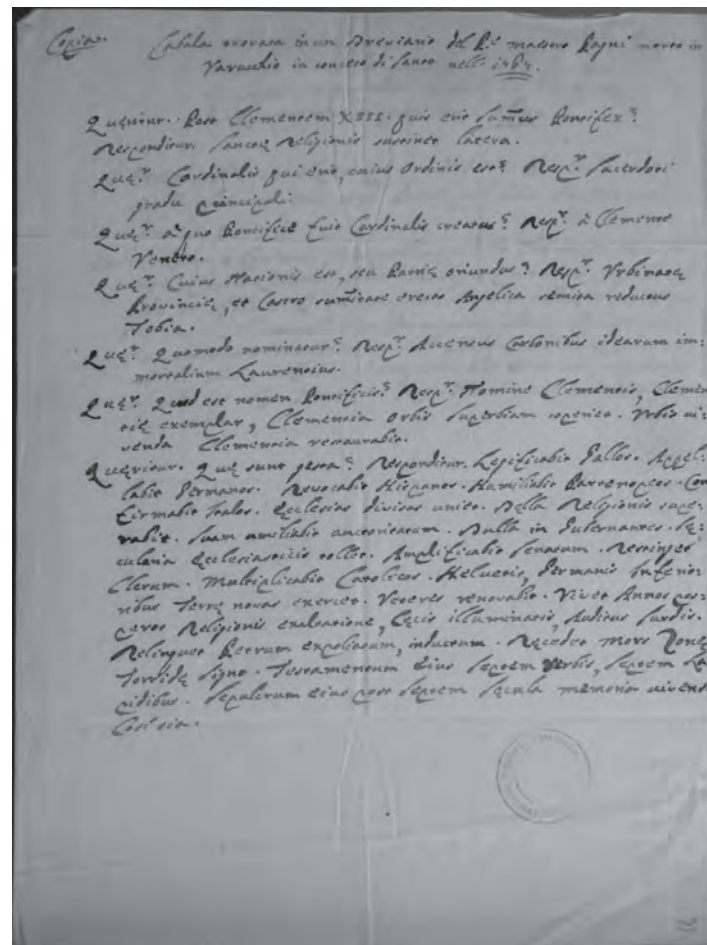 Copia. Cabala trovata in un Breviario del P.e maestro Bagni morto in
concetto di santo nell:
Quęritur. Post Clementem XIII. quis erit sum̃us Pontifex?
Respondetur. Sanctę Religionis sustinet latera.
Quę.r Cardinalis qui erit, cuius Ordinis est? Resp.r Sacerdoti
gradu principali.
Quę.r à quo Pontifice fuit Cardinalis creatus? Resp.r à Clemente
Veneto.
Quę.r Cuius Nationis est, seu Patrię oriundus? Resp.r Urbinatę
Provincię, et Castro sum̃itate erecto Angelica semita reductus
Tobia.
Quę.r Quomodo nominatur? Resp.r Accensus Carbonibus idearum im:
mortalium Laurentius.
Quę.r Quod est nomen Pontificis? Resp.r Nomine Clementis, Clemen
tię exemplar, Clementia Orbis superbiam
Clementia restaurabit.
Quęritur. Quę sunt gesta? Respondetur. Gallos. Appel:
labit Germanos. Revocabit Hispanos. Humiliabit Partenopeos. Con
firmabit Italos. Ecclesias divisas uniet. Bella Religionis supe:
rabit. Suam umiliabit auctoritatem. Bulla in Gubernantes. Sę:
cularia Ecclesiasticis tollet. Amplificabit Senatum. Restringet
Clerum. Multiplicabit Catolicos. Helvetiis, Germanis Inferio:
ribus Terrę novas exercet. Veteres renovabit. Vivet Annos pos:
Religionis exaltatione, Cęcis illuminatis, Auditus Surdis.
Relinquet Petrum expoliatum, indutum. Recedet Mors Zonę
Torridę signo. Testamentum Eius septem verbis, septem La
pidibus. Sepulcrum eius post septem Sęcula memoria vivens
Così sia.